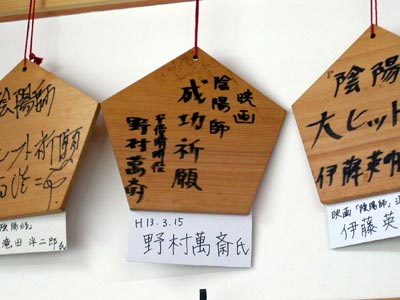 陰陽師
ヒット祈願
陰陽師」
滝田洋二郎氏
映画
陰陽師
成功祈願
安倍晴明役
野村萬斎
H 13.3.15
野村萬斎氏
陰陽
大ヒット
伊藤英
映画「陰陽師」
伊藤英